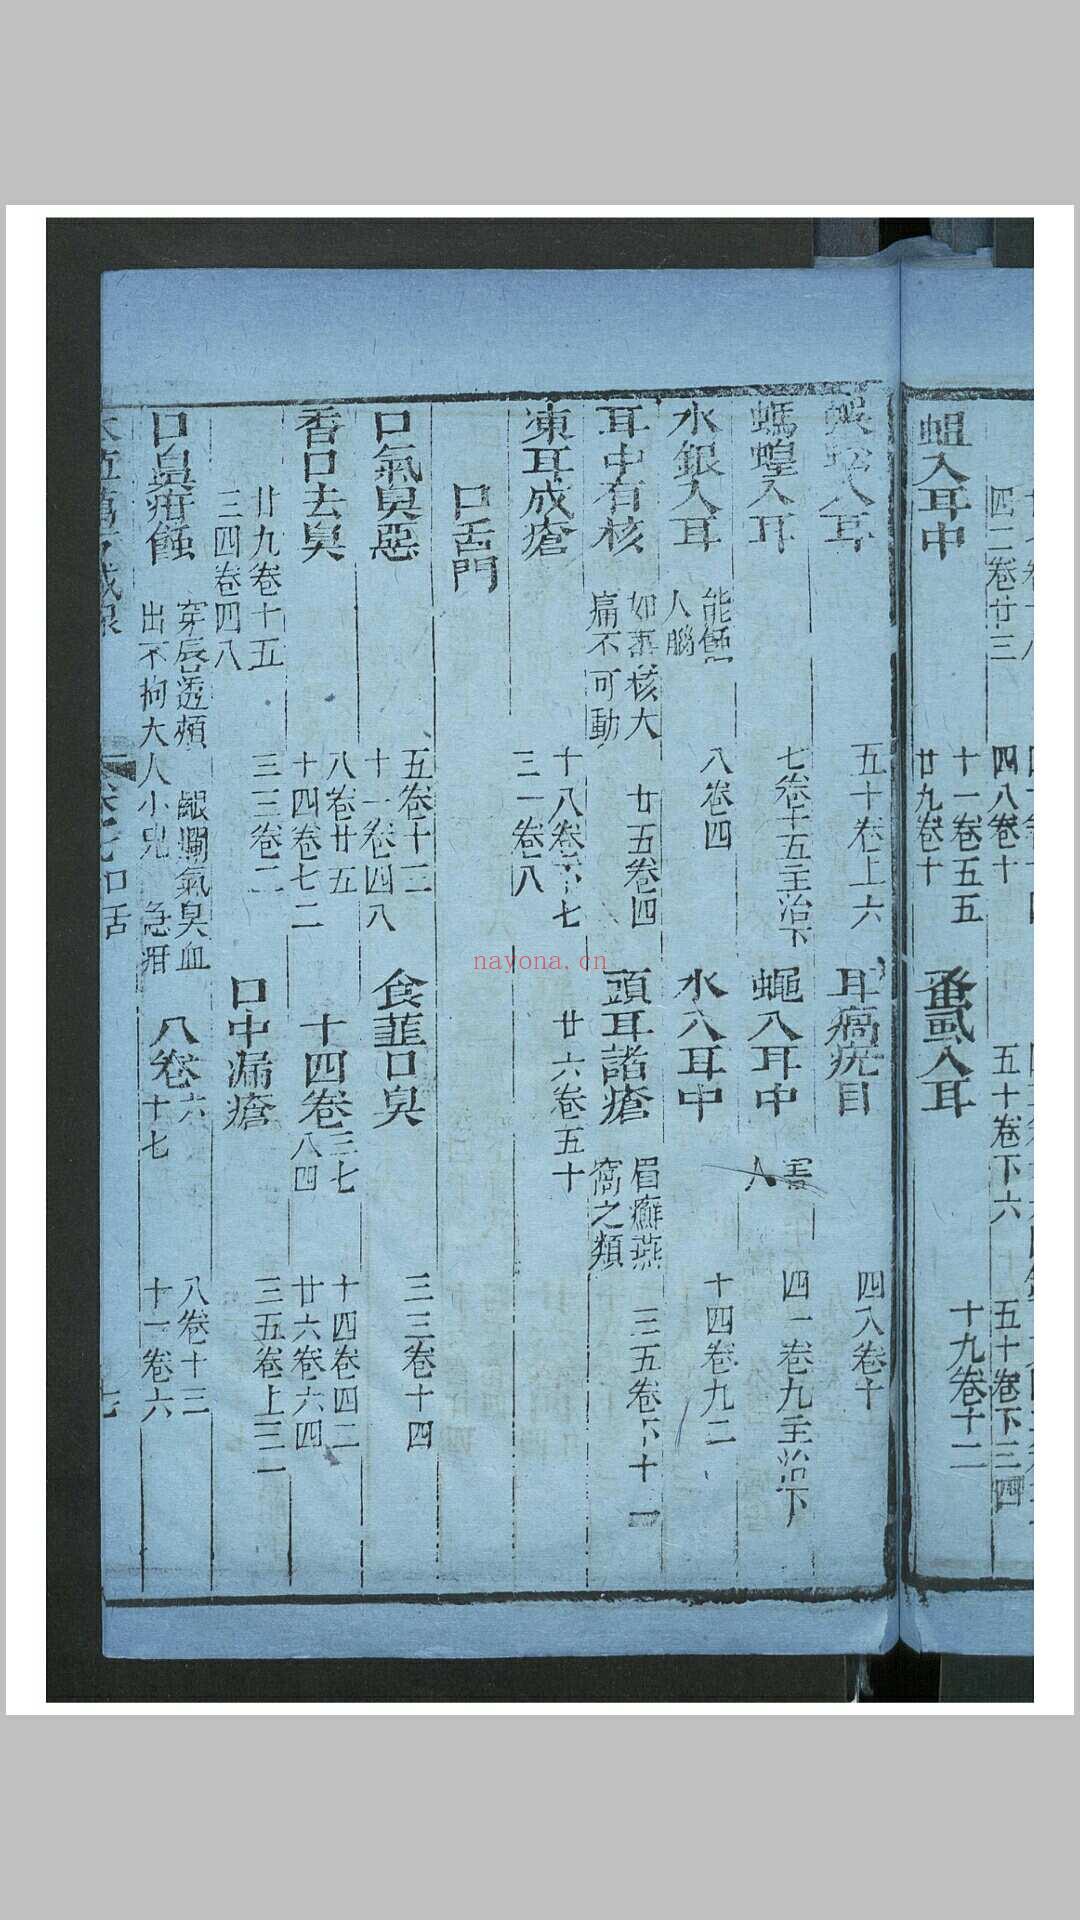 蛆入耳中
十一卷五五
廿九卷十
蚤虱入耳
十九卷十二
四二卷廿三
四八卷十
五十卷下六
五十卷下三四
入耳
五十卷上六
耳
目
四八卷十
螞蝗入耳
七卷十五主治下
蠅入耳中
害人
四一卷九主治下
水銀入耳
能蝕人腦
八卷四
水入耳中
十四卷九二
耳中有核
如棗核大
痛不可動
廿五卷四
頭耳諸瘡
眉癬燕
窩之類
三五卷下十一
凍耳成瘡
十八卷 七
三一卷八
廿六卷五十
口舌門
口氣臭惡
五卷十二
十一卷四八
食韮口臭
三三卷十四
香口去臭
八卷廿五
十四卷七二
十四卷三七
八四
十四卷四二
廿六卷六四
廿九卷十五
三四卷四八
三三卷二
口中漏瘡
三五卷上三一
口鼻疳蝕
穿唇透頰
齦爛氣臭血
出不拘大人小兒
急疳
八卷六
十七
八卷十三
十一卷六
口舌
七
nayona.cn